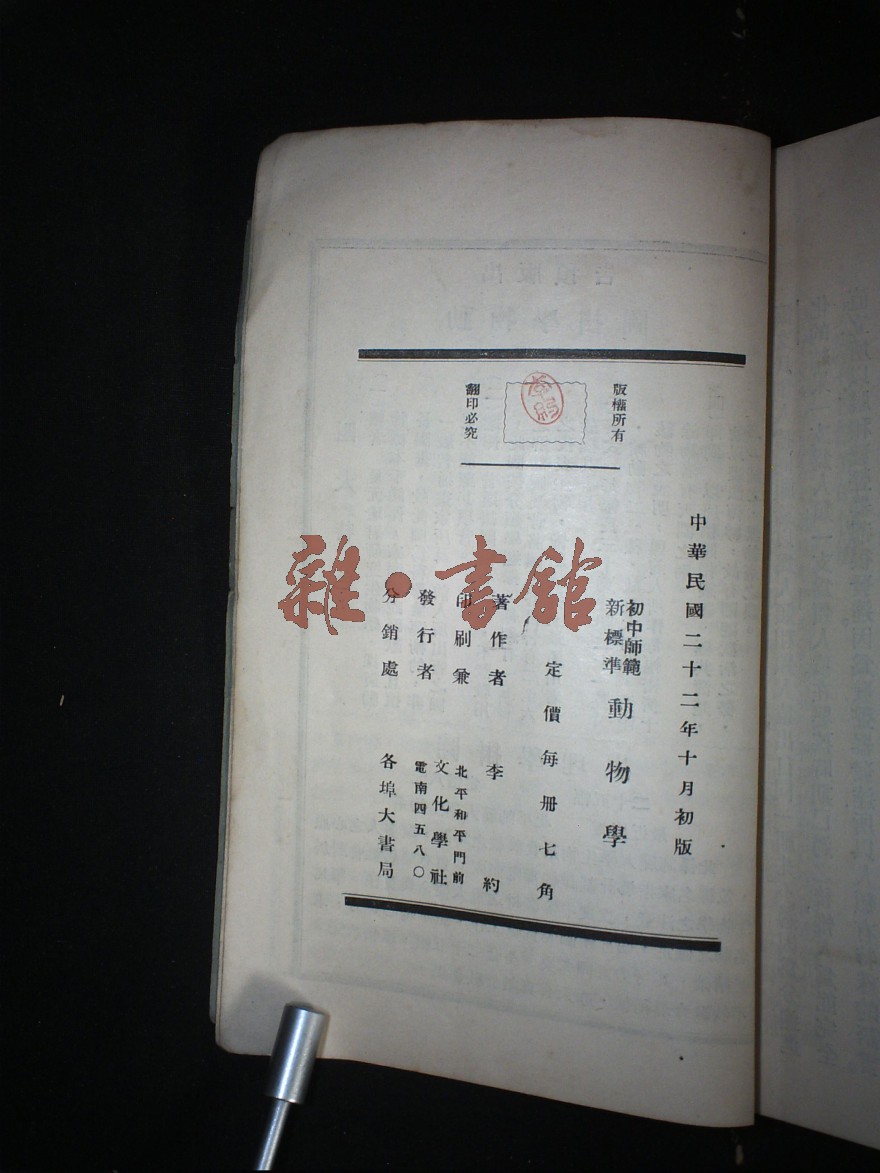 版權所有
翻印必究
李約
中華民國二十二年十月初版
初中師範
新標準
動物學
定價每冊七角
著作者 李約
印刷兼
發行者
北平和平門前
文化學社
電南四五八〇
分銷處 各埠大書局
雜·書館